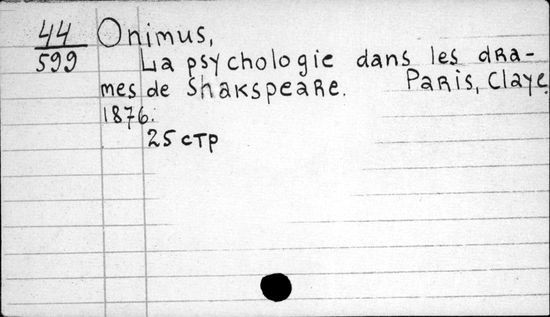 44 Onimus,
599 La psychologie dans les dra-
mes de Shakspeare. Paris, Claye,
1876.
25 стр